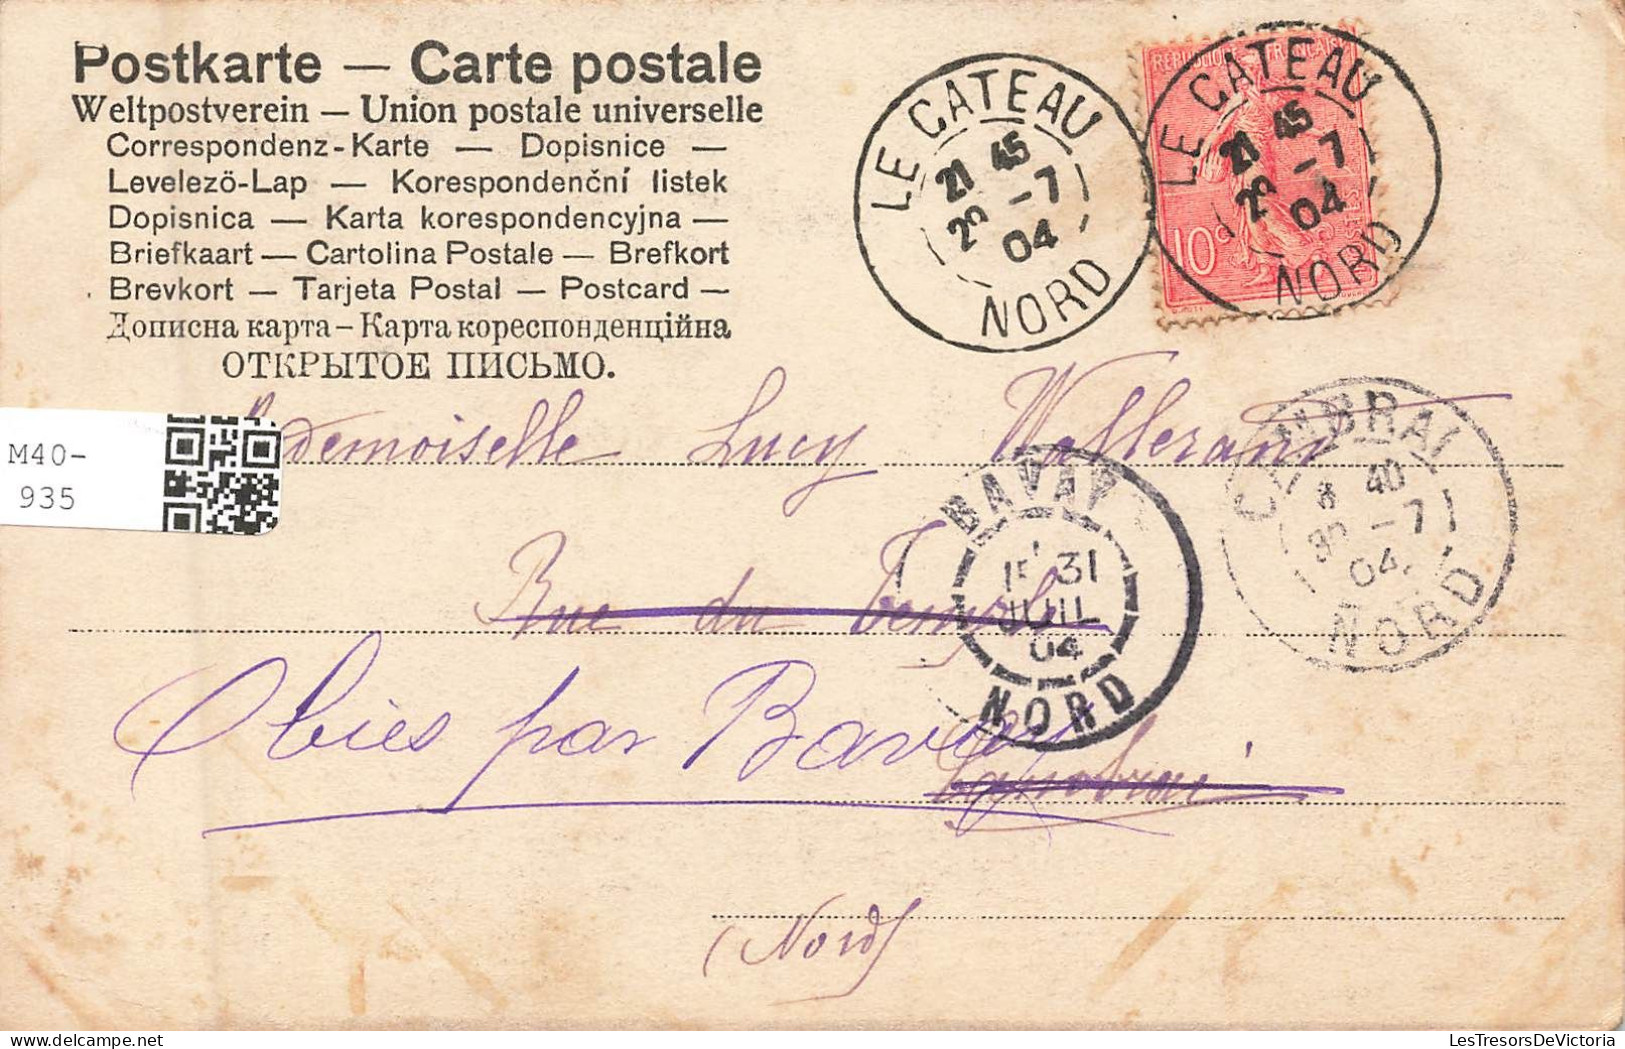 Postkarte — Carte postale
Weltpostverein — Union postale universelle
Correspondenz-Karte — Dopisnice —
Levelezö-Lap — Korespondenční listek
Dopisnica — Karta korespondencyjna —
Briefkaart — Cartolina Postale — Brefkort
Brevkort — Tarjeta Postal — Postcard —
Дописна карта – Карта кореспонденційна
ОТКРЫТОЕ ПИСЬМО.
LE CATEAU
21 45
29 -7
04
NORD
REPUBLIQUE FRANCAISE
10c
LE CATEAU
21 45
29 -7
04
NORD
M40-
935
Mademoiselle Lucy Wallerand
CAMBRAI
40
30 -7
04
NORD
BAVAY
1E 31
JUIL
04
NORD
Rue du Temple
Obies par Bavay
Cambrai
(Nord)
LesTresorsDeVictoria